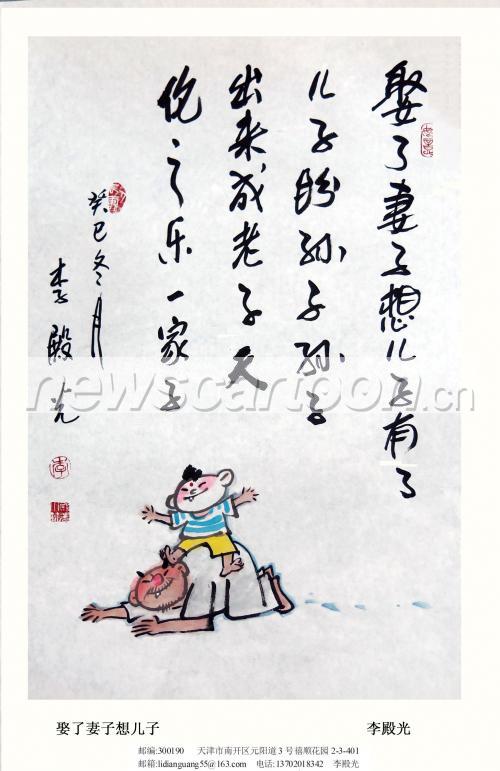 娶了妻子想儿子有了
儿子盼孙子孙子
出来成老子天
伦之乐一家子
癸巳冬月
李殿光
newscartoon.cn
娶了妻子想儿子 李殿光
邮编:300190 天津市南开区元阳道3号禧顺花园2-3-401
邮箱:lidianguang55@163.com 电话:13702018342 李殿光